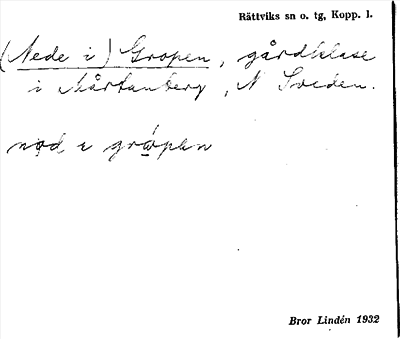 Rättviks sn o. tg, Kopp. l.
(Nede i) Gropen, gårdklase
i Mårtanberg, N Sveden.
Bror Lindén 1932